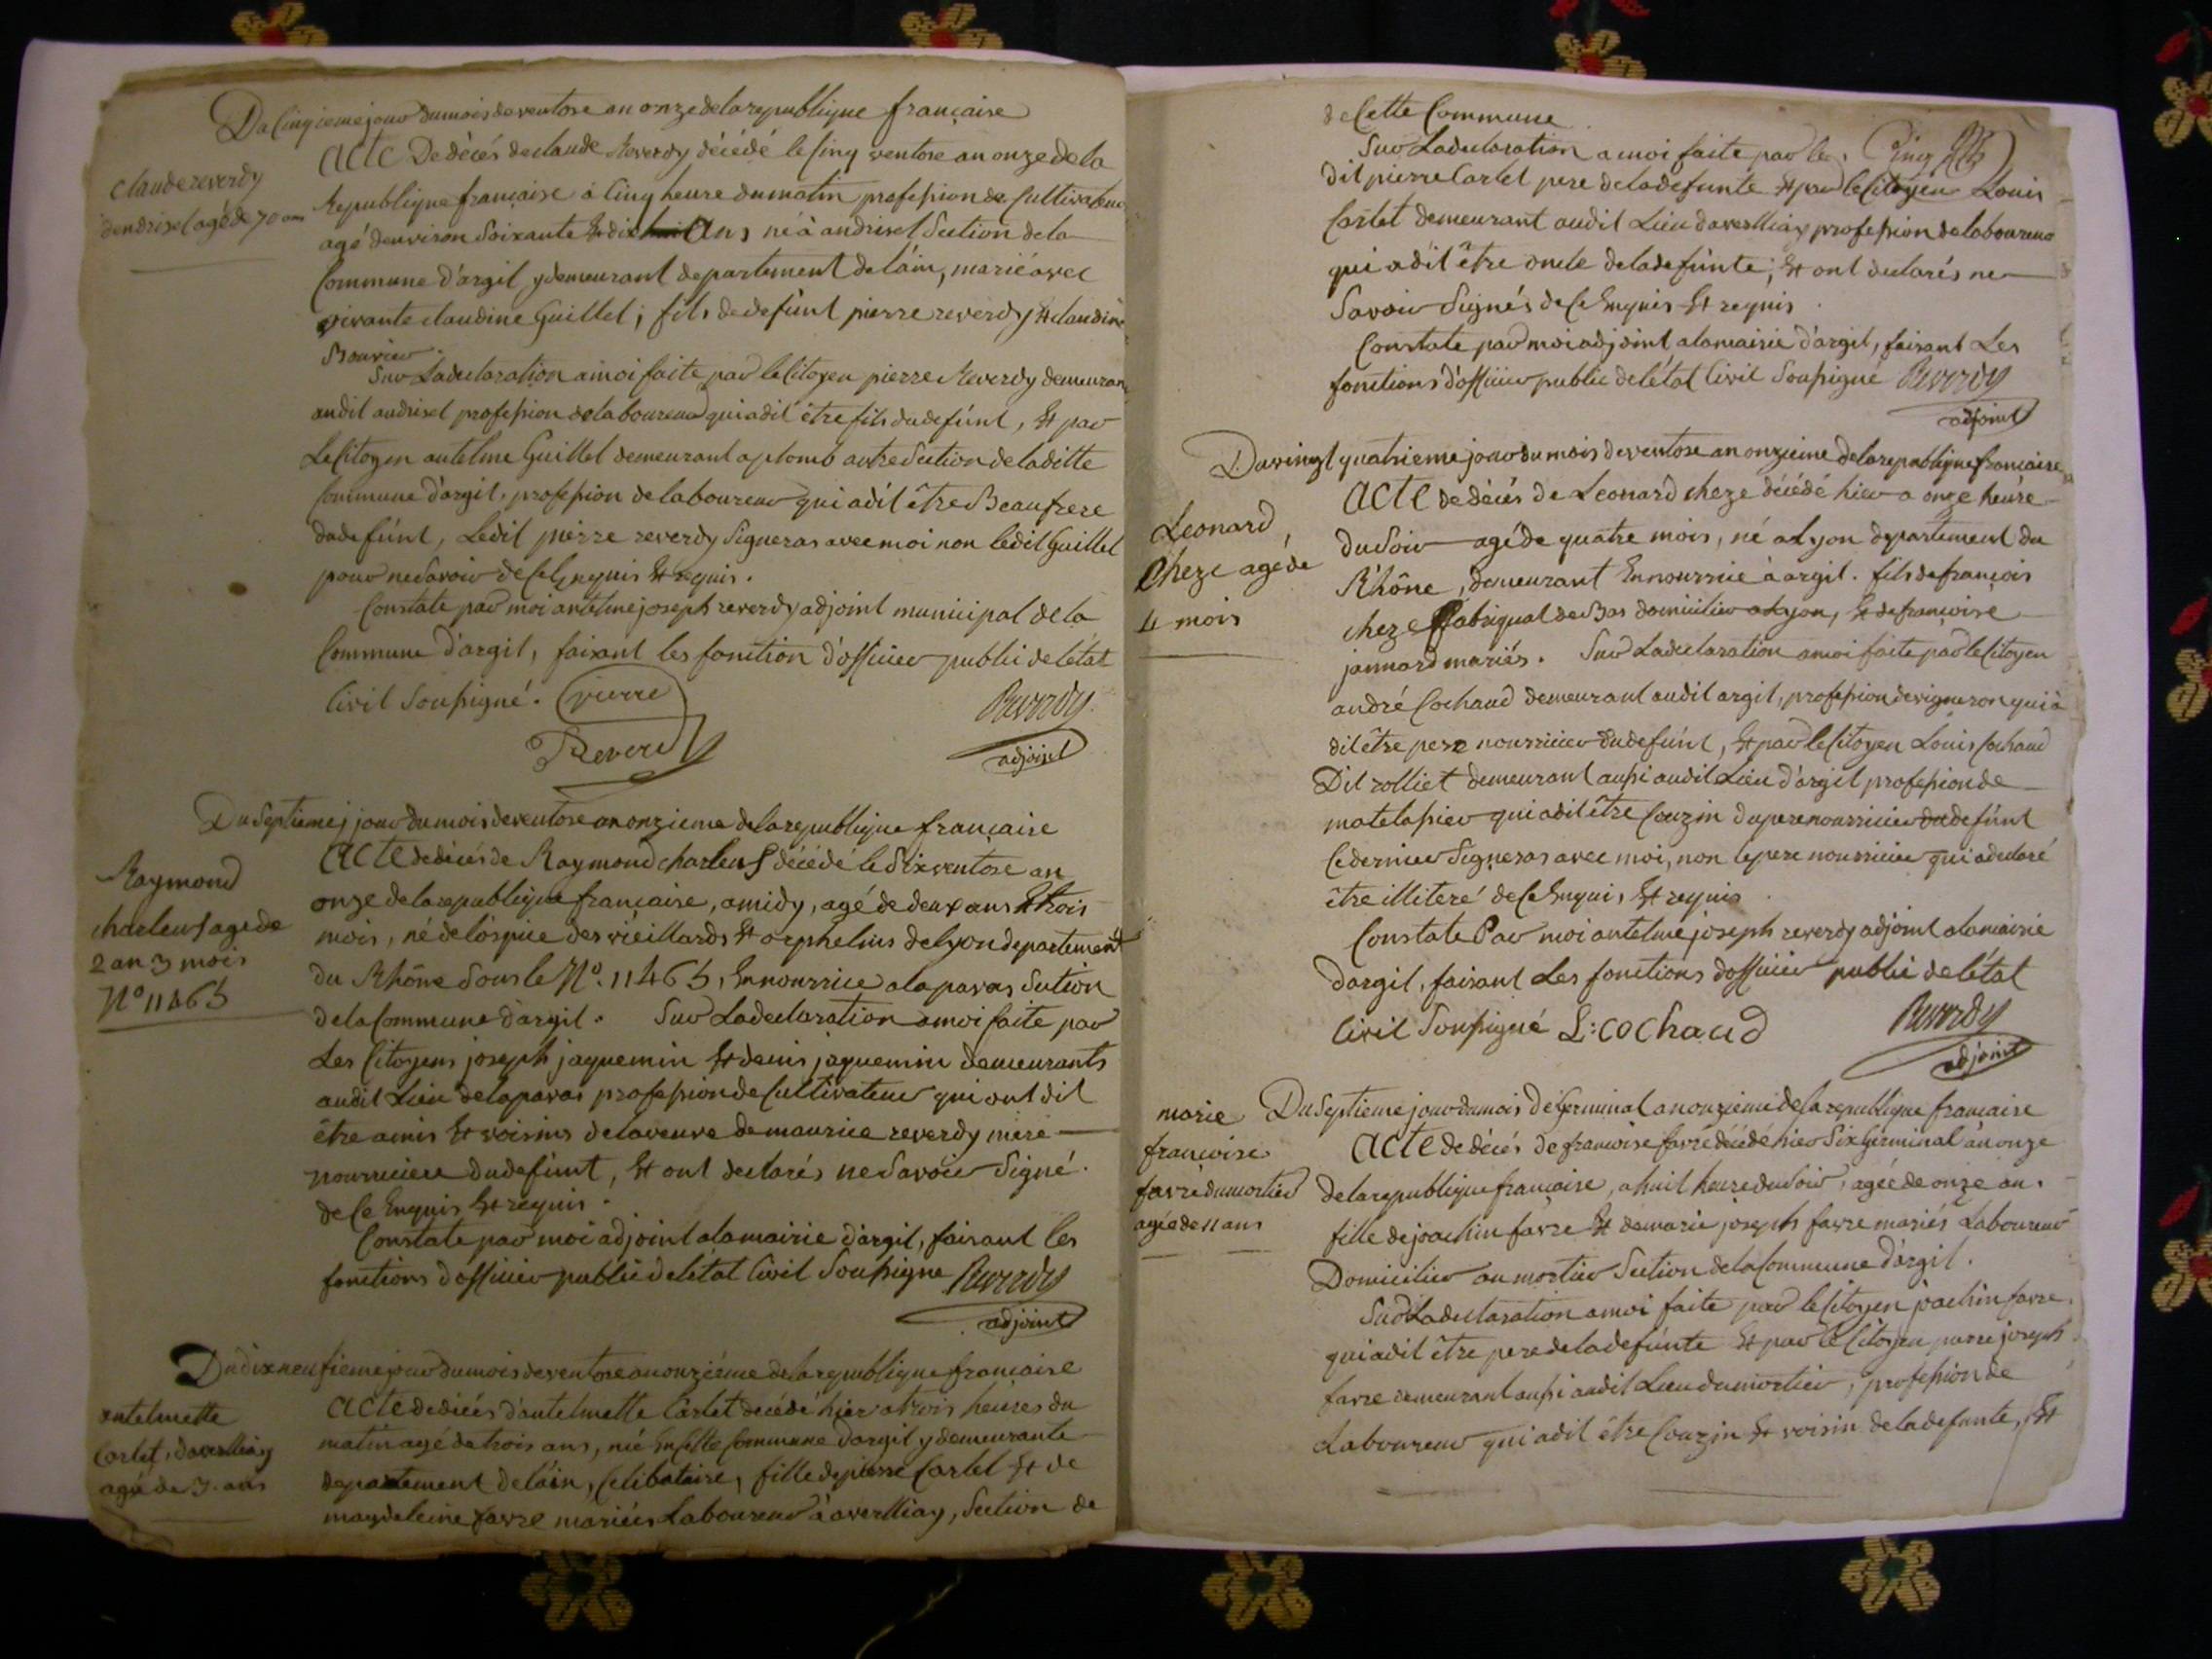 Du Cinqieme jour du mois de ventose an onze de la republique française
claude reverdy
dandrisel agé de 70 ans
Acte De décés de claude Reverdy décédé le cinq ventose an onze de la
Republique française à Cinq heure du matin profession de Cultivateur
agé d'envison Soixante Et dix Ans né à andrisel Section de la
Commune d'argil y demeurant departement de l'ain, marié avec
vivante claudine Guillet; fils de defúnt pierre reverdy Et claudine
Bouvier.
Sur La declaration a moi faite par le Citoyen pierre Reverdy demeurant
audit andrisel profession de laboureur qui a dit être fils du defúnt, Et par
Le Citoyen antelme Guillet demeurant a plomb autre Section de la ditte
Commune d'argil, profession de laboureur qui a dit être Beaufrere
du defúnt, Ledit pierre reverdy Signeras avec moi non ledit Guillet
pour ne Savoir de Ce Enquis Et requis.
Constate par moi antelme joseph reverdy adjoint municipal de la
Commune d'argil, faisant les fonction d'officier public de l'état
Civil Soussigné. pierre Reverdy
Reverdy
adjoint
Du Septieme j jour du mois de ventose an onzieme de la republique française
Raymond
charleuf age de
2 an 3 mois
N° 11463
Acte de décés de Raymond charleuf décédé le Six ventose an
onze de la republique française, a midy, agé de deux ans Et trois
mois, né de l'óspice des vieillards Et orphelins de lyon departement
du Rhône Sous le N°. 11463, En nourrice a la pavas Section
de la Commune d'argil. Sur La declaration a moi faite par
Les Citoyens joseph jaquemin Et denis jaquemin demeurants
audit Lieu de la pavas profession de Cultivateur qui ont dit
être amis Et voisins de la veuve de maurice reverdy mère
nourriciere du defunt, Et ont declarés ne Savoir Signé.
de Ce Enquis Et requis.
Constate par moi adjoint a la mairie d'argil, faisant les
fonctions d'officier public de l'état Civil Soussigne Reverdy
adjoint
Du dix neufieme jour du mois de ventose an onziéme de la republique française
antelmette
Carlet, d'averlliay
agé de 3. ans
Acte de décés d'antelmette Carlet decédé hier a trois heures du
matin agé de trois ans, né En Cette Commune d'argil y demeurante
departement de l'ain, Celibataire, fille de pierre Carlet Et de
magdeleine favre mariés Laboureur à averlliay, Section de
de Cette Commune
Sur La declaration a moi faite par le. Cinq
dit pierre Carlet pere de la defunte Et par le Citoyen Louis
Carlet demeurant audit Lieu d'averlliay profession de laboureur
qui a dit être oncle de la defúnte; Et ont declarés ne
Savoir Signés de Ce Enquis Et requis.
Constate par moi adjoint a la mairie d'argil, faisant Les
fonctions d'officier public de l'état Civil Soussigné Reverdy
adjoint
Du vingt quatrieme jour du mois de ventose an onzieme de la republique française
Leonard
Cheze agé de
4 mois
Acte de décés de Leonard cheze décédé hier a onze heúre
du Soir agé de quatre mois, né a Lyon departement du
Rhône, demeurant En nourrice à argil. fils de françois
cheze fabriquat de Bas domicilier a Lyon, Et de françoise
jannard mariés. Sur La declaration a moi faite par le Citoyen
andré Cochaud demeurant audit argil, profession de vigneron qui a
dit être pere nourricier du defúnt, Et par le Citoyen Louis Cochaud
Dit rolliet demeurant aussi audit Lieu d'argil profession de
matelassier qui a dit être Couzin du pere nourricier du defúnt
Ce dernier Signeras avec moi, non le pere nourricier qui a declaré
être illiteré de Ce Enquis, Et requis
Constate Par moi antelme joseph reverdy adjoint a la mairie
d'argil, faisant Les fonctions d'officier public de l'état
Civil Soussigné L: cochaud Reverdy
adjoint
Du Septieme jour du mois de Germinal an onzieme de la republique française
marie
françoise
favre du mortier
agée de 11 ans
Acte de décés de françoise favre décédé hier Six Germinal an onze
de la republique française, a huit heure du Soir, agée de onze an.
fille de joachin favre Et de marie joseph favre mariés Laboureur
Domicilier au mortier Section de la Commune d'argil.
Sur La declaration a moi faite par le Citoyen joachin favre.
qui a dit être pere de la defúnte Et par le Citoyen pierre joseph
favre demeurant aussi audit Lieu du mortier, profession de
Laboureur qui a dit être Couzin Et voisin de la defunte, Et